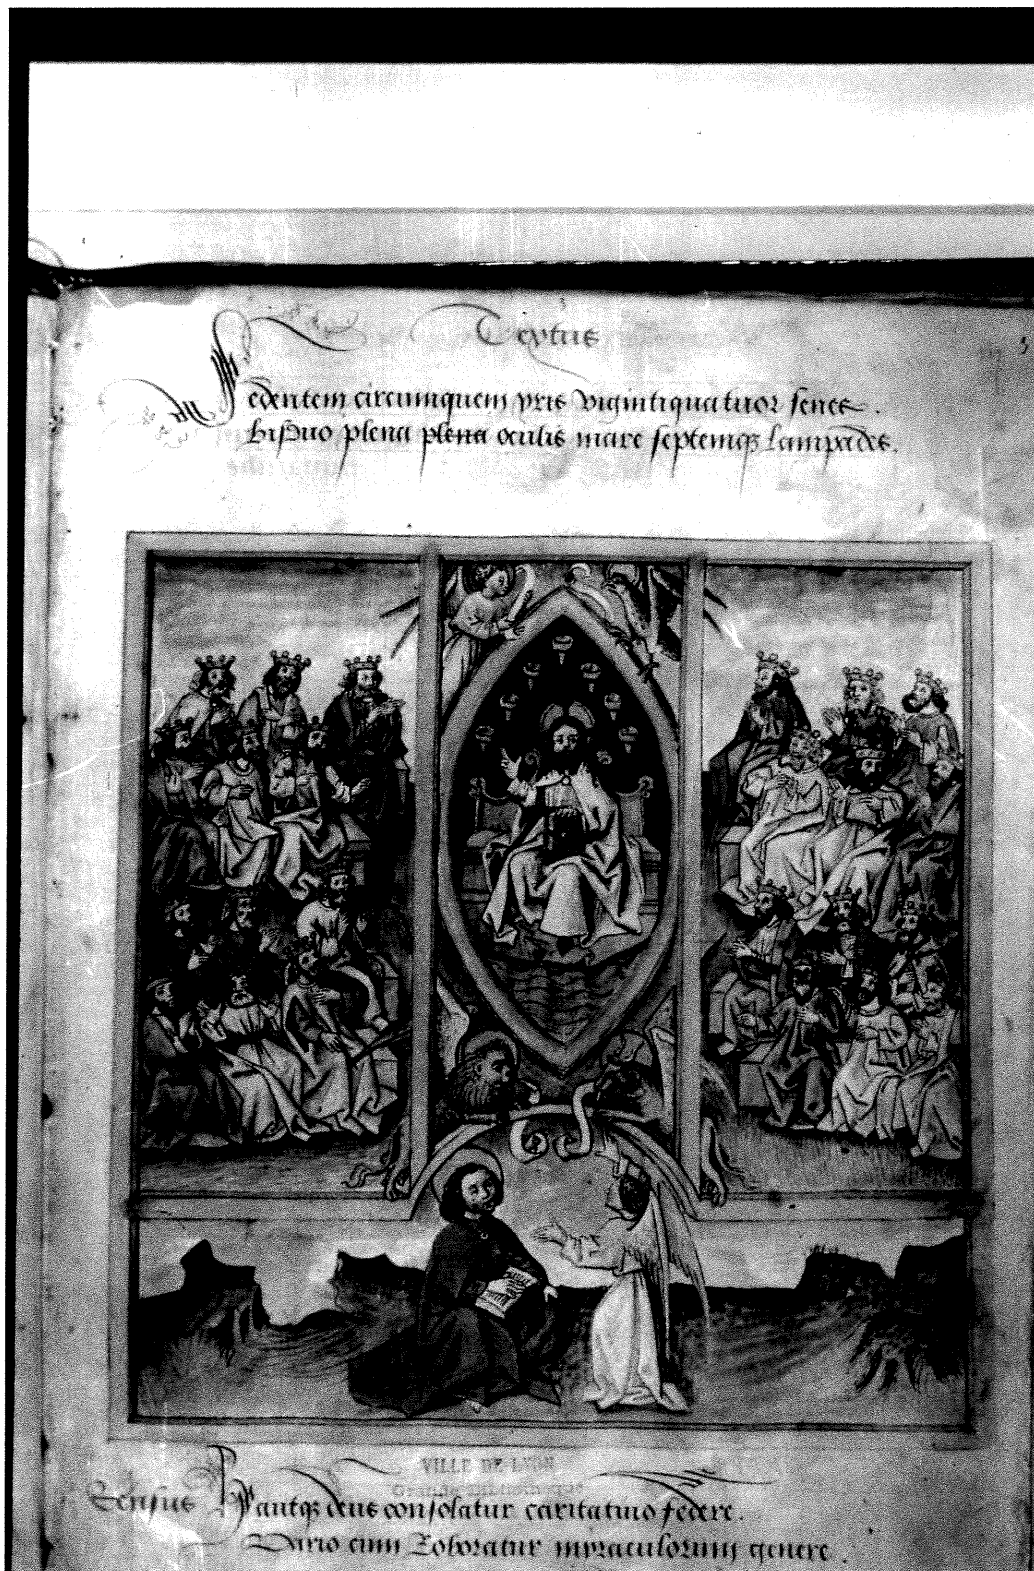 Textus
5
Sedentem circumquem pris vigintiquatuor senes.
bisduo plena plena oculis mare septemque lampades.
VILLE DE LYON
Sensus
deus consolatur caritatiuo federe.
Vario cum roboratur miraculorum genere.